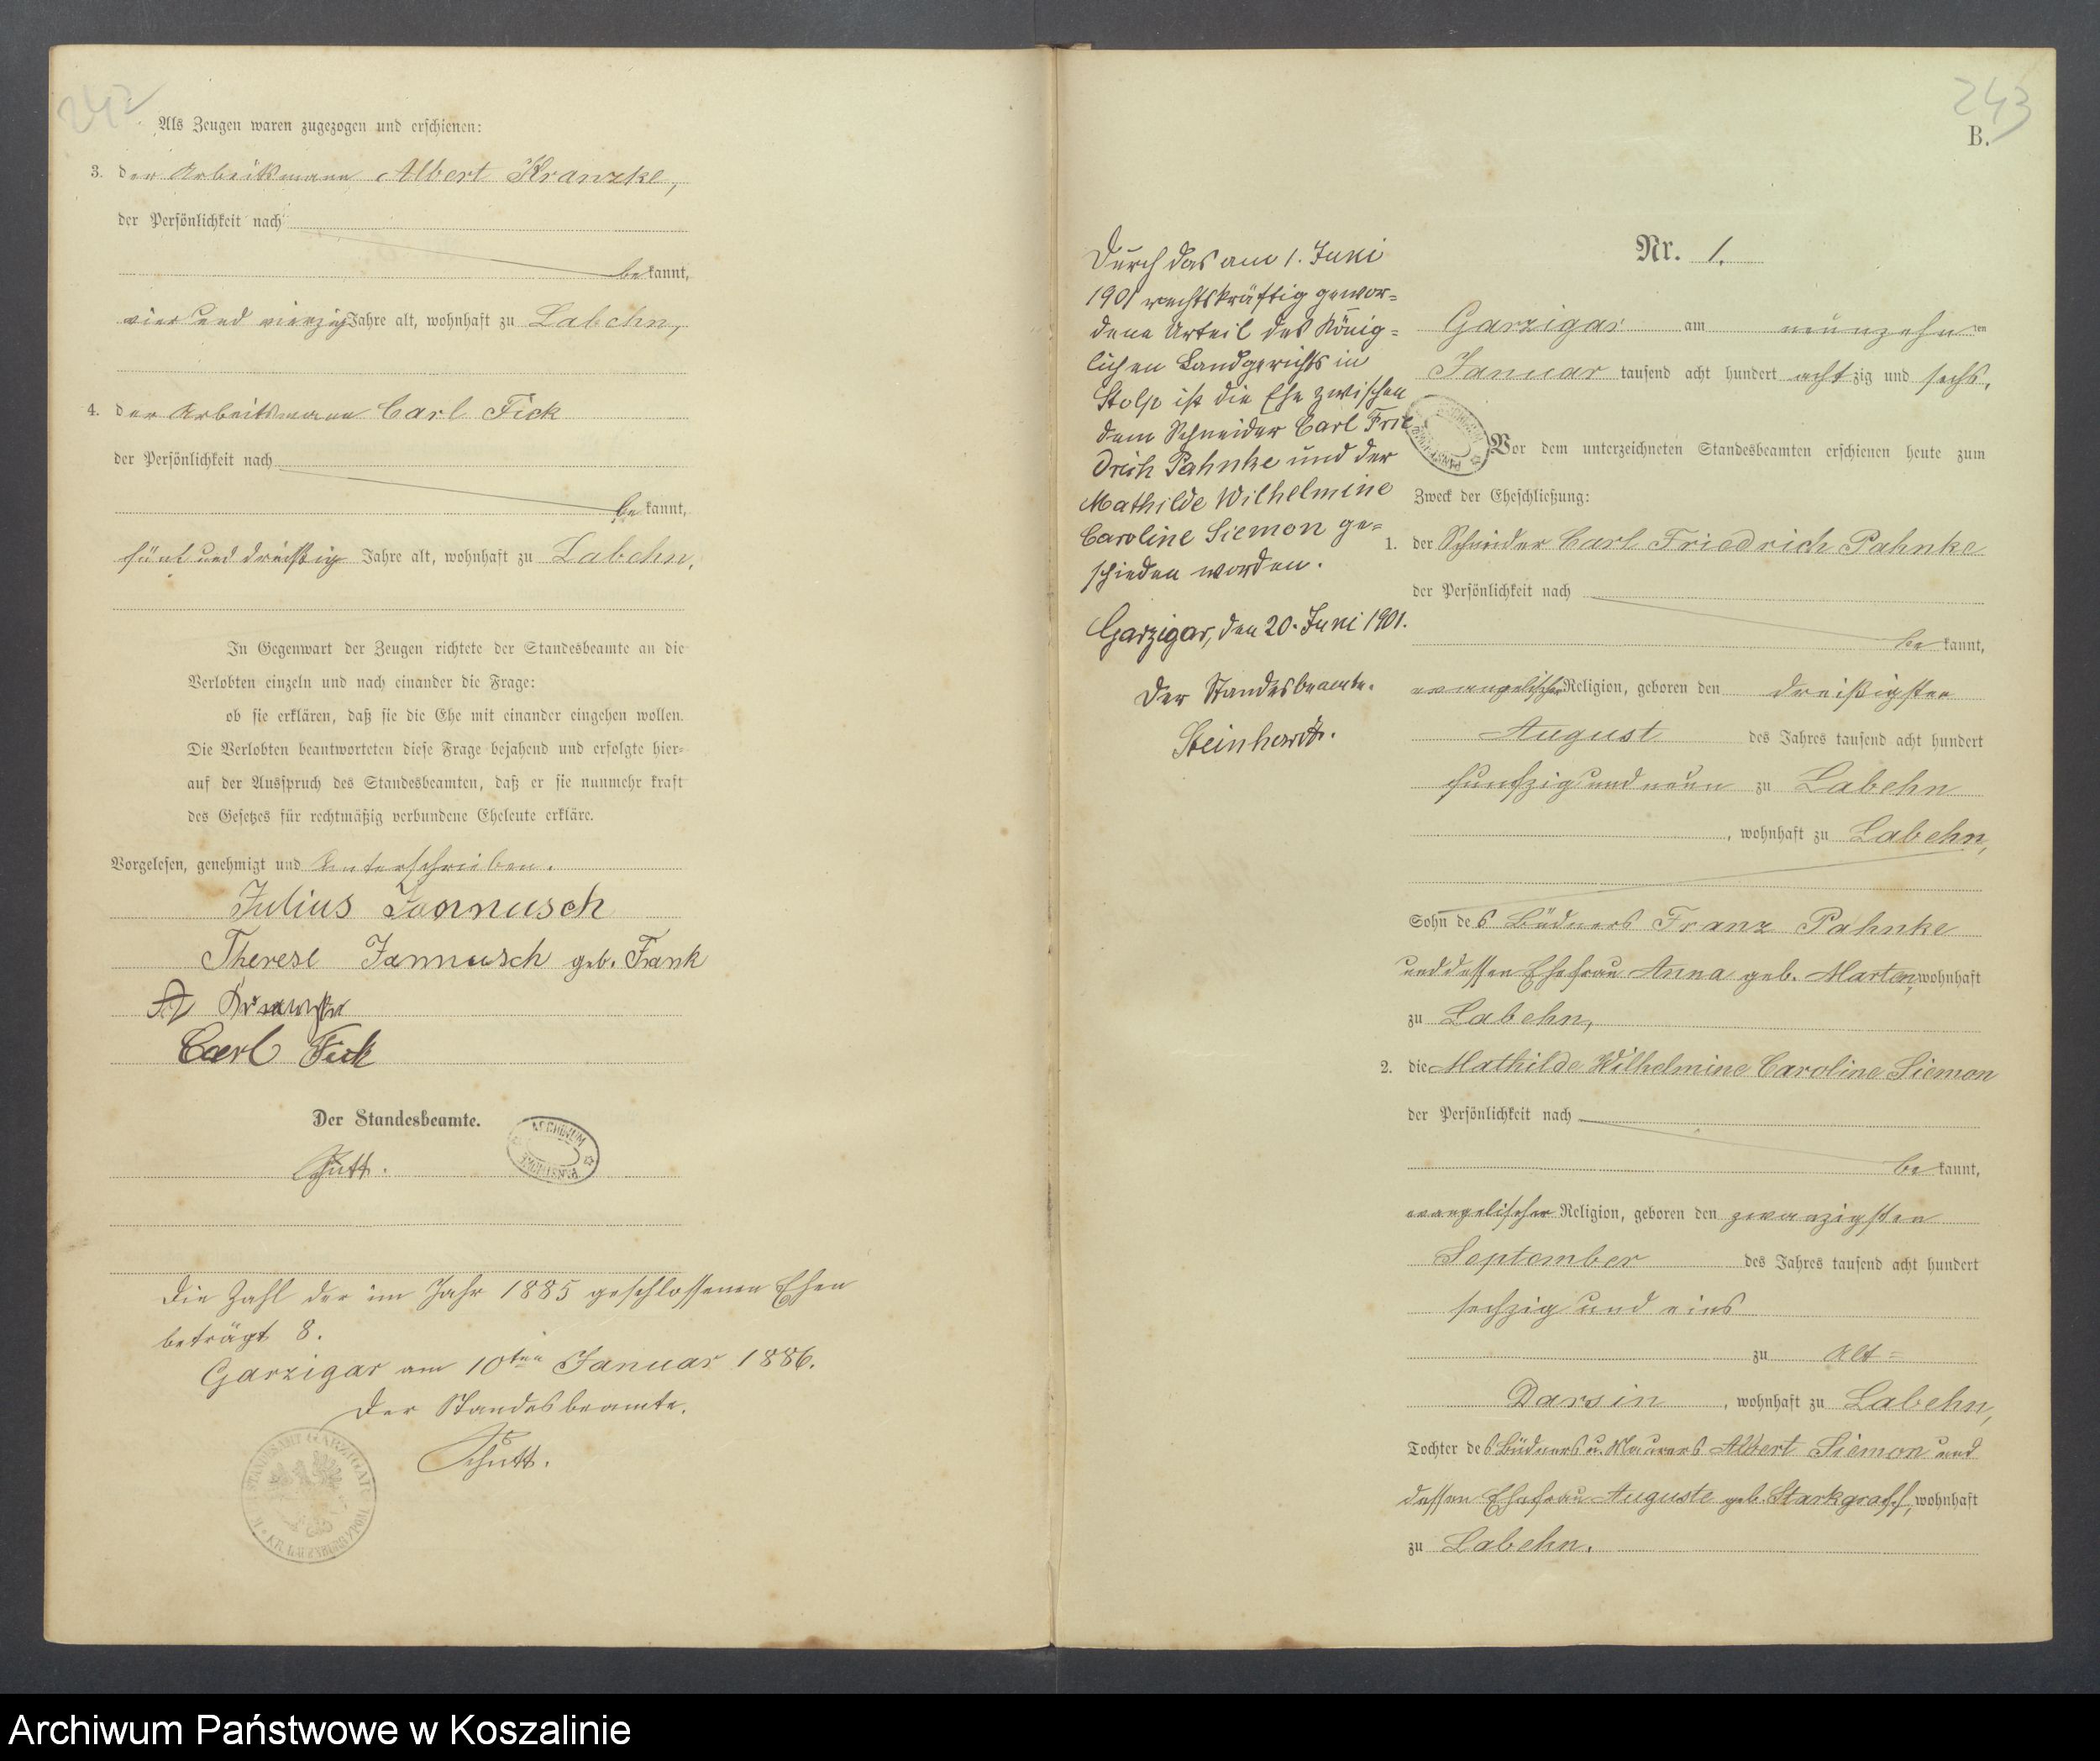 242
Als Zeugen waren zugezogen und erschienen:
3. der Arbeitsmann Albert Kranzke,
der Persönlichkeit nach
bekannt,
vier und vierzig Jahre alt, wohnhaft zu Labehn,
4. der Arbeitsmann Carl Fick
der Persönlichkeit nach
bekannt,
fünf und dreißig Jahre alt, wohnhaft zu Labehn.
In Gegenwart der Zeugen richtete der Standesbeamte an die
Verlobten einzeln und nach einander die Frage:
ob sie erklären, daß sie die Ehe mit einander eingehen wollen.
Die Verlobten beantworteten diese Frage bejahend und erfolgte hier-
auf der Ausspruch des Standesbeamten, daß er sie nunmehr kraft
des Gesetzes für rechtmäßig verbundene Eheleute erkläre.
Vorgelesen, genehmigt und unterschrieben.
Julius Jannusch
Therese Jannusch geb. Frank
Carl Fick
Der Standesbeamte.
Schutt.
Die Zahl der im Jahr 1885 geschlossenen Ehen
beträgt 8.
Garzigar am 10ten Januar 1886.
Der Standesbeamte.
Schutt.
243
B.
Durch das am 1. Juni
1901 rechtskräftig gewor=
dene Urteil des König=
lichen Landgerichts in
Stolp ist die Ehe zwischen
dem Schneider Carl Frie
drich Pahnke und der
Mathilde Wilhelmine
Caroline Siemon ge=
schieden worden.
Garzigar, den 20. Juni 1901.
Der Standesbeamte.
Nr. 1.
Garzigar am neunzehnten
Januar tausend acht hundert achtzig und sechs.
Vor dem unterzeichneten Standesbeamten erschienen heute zum
Zweck der Eheschließung:
1. der Schneider Carl Friedrich Pahnke
der Persönlichkeit nach
bekannt,
evangelischer Religion, geboren den dreißigsten
August des Jahres tausend acht hundert
funfzig und neun zu Labehn
, wohnhaft zu Labehn,
Sohn des Büdners Franz Pahnke
und dessen Ehefrau Anna geb. Marten, wohnhaft
zu Labehn,
2. die Mathilde Wilhelmine Caroline Siemon
der Persönlichkeit nach
bekannt,
evangelischer Religion, geboren den zwanzigsten
September des Jahres tausend acht hundert
sechzig und eins
zu Alt=
Darsin, wohnhaft zu Labehn,
Tochter des Büdners u. Maurers Albert Siemon und
dessen Ehefrau Auguste geb. Starkgraff, wohnhaft
zu Labehn.
Archiwum Państwowe w Koszalinie